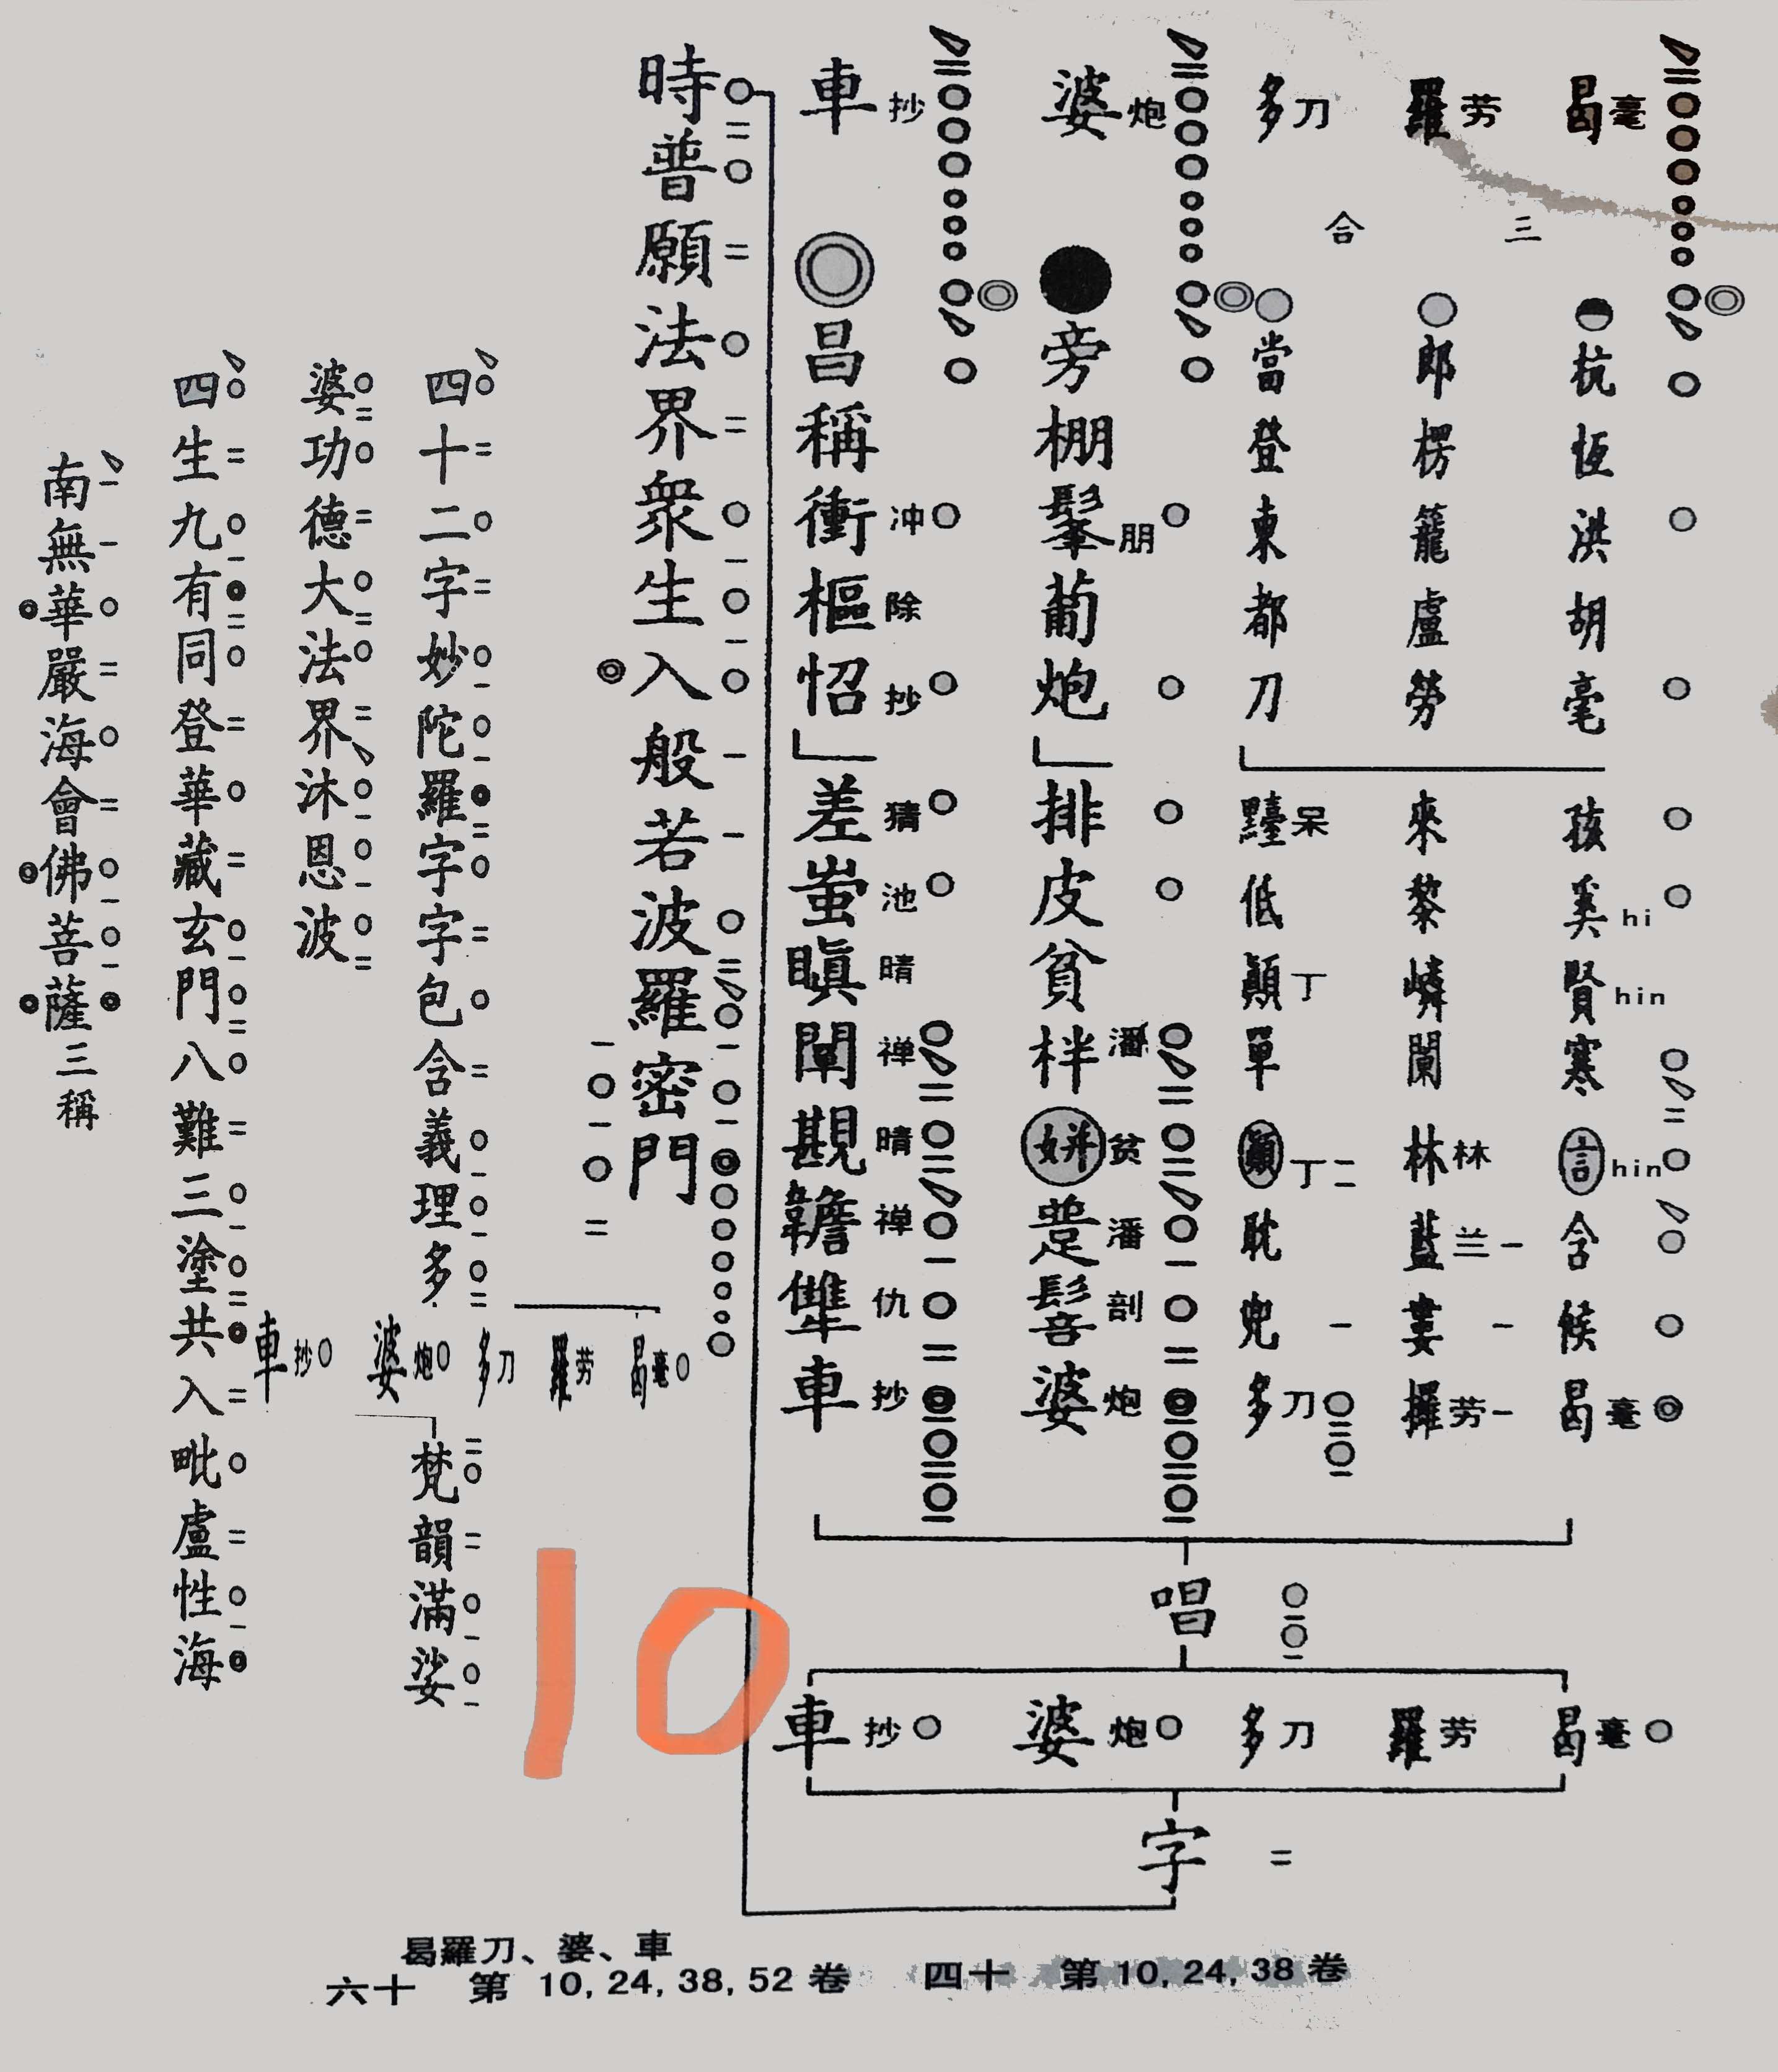 曷毫
羅劳
多刀
三合
杭恆洪胡毫
孩奚hi賢hin寒言hin含候曷毫
郎楞籠盧勞
來黎嶙闌林林藍兰婁攞劳
當登東都刀
低顛丁單顛丁耽兜多刀
婆炮
旁棚髼朋葡炮
排皮貧柈潘姘贫潘炮
車抄
昌稱衝冲樞除怊抄
差猜蚩池瞋晴闡禅晴禅讐仇車抄
唱
曷毫 羅劳 多刀 婆炮 車抄
字
時普願法界衆生入般若波羅密門
曷毫 羅劳 多刀 婆炮 車抄
四十二字妙陀羅字字包含義理多
梵韻滿娑
婆功德大法界沐恩波
四生九有同登華藏玄門八難三塗共入毗盧性海
南無華嚴海會佛菩薩三稱
10
曷羅刀、婆、車
六十 第 10,24,38,52 卷 四十 第 10,24,38 卷